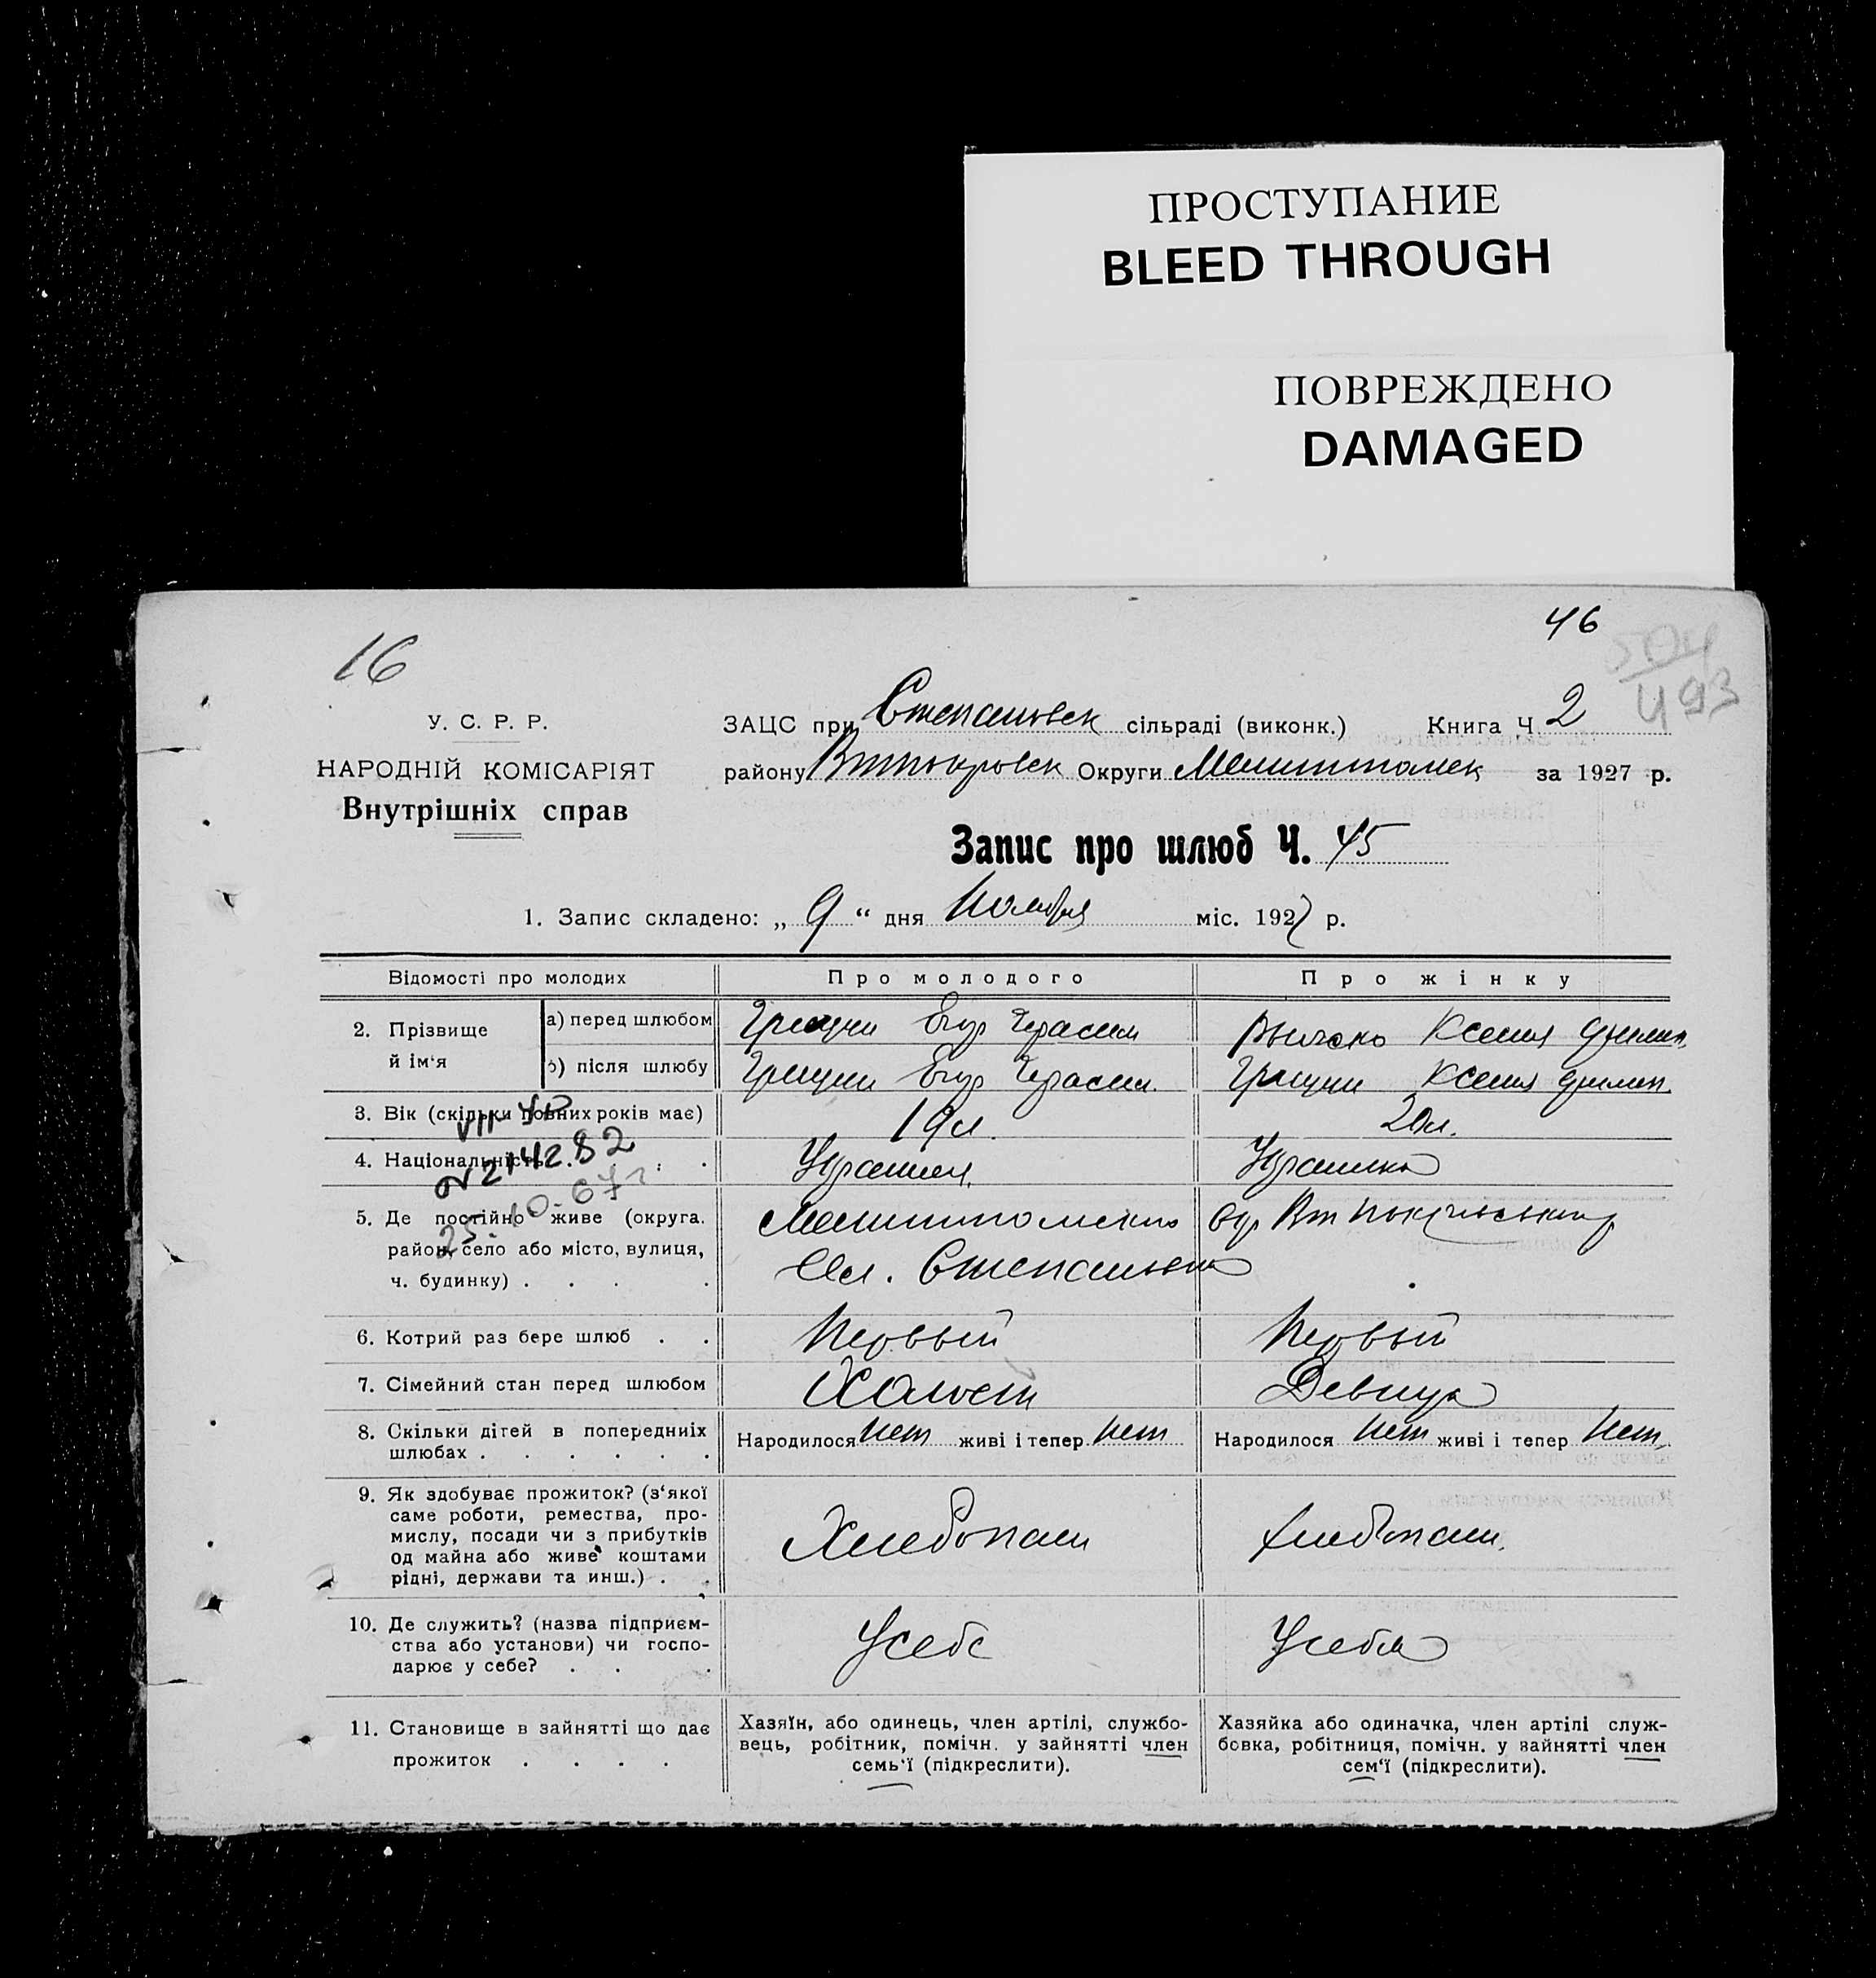 ПРОСТУПАНИЕ
BLEED THROUGH
ПОВРЕЖДЕНО
DAMAGED
16
46
504
493
У. С. Р. Р.
НАРОДНІЙ КОМІСАРІЯТ
Внутрішніх справ
ЗАЦС при Степановск сільраді (виконк.) Книга Ч. 2
району Втпокровск Округи Мелитполск за 1927 р.
Запис про шлюб Ч. 45
1. Запис складено: „ 9 “ дня Ноября міс. 1927 р.
Відомості про молодих Про молодого Про жінку
2. Прізвище й ім‘я
а) перед шлюбом Грищун Егор Герасим Ксения
б) після шлюбу Грищун Егор Герасим. Грищун Ксения
3. Вік (скільки повних років має) 19 л. 20 л.
4. Національність Украинец. Украинка
VII-ЯР
№ 214282
25.10.67 г
5. Де постійно живе (округа.
район, село або місто, вулиця,
ч. будинку) . . . .
Мелитполско окр Вт Покровський р
Сел. Степановка
6. Котрий раз бере шлюб . . Первый Первый
7. Сімейний стан перед шлюбом Холост Девица
8. Скільки дітей в попередниіх
шлюбах . . . . . .
Народилося нет живі і тепер нет Народилося нет живі і тепер нет.
9. Як здобуває прожиток? (з‘якої
саме роботи, ремества, про-
мислу, посади чи з прибутків
од майна або живе коштами
рідні, держави та инш.) . .
Хлебопаш Хлебопаш.
10. Де служить? (назва підприєм-
ства або установи) чи госпо-
дарює у себе? . . .
У себе У себя
11. Становище в зайнятті що дає
прожиток . . . .
Хазяїн, або одинець, член артілі, службо-
вець, робітник, помічн. у зайнятті член
семь‘ї (підкреслити).
Хазяйка або одиначка, член артілі служ-
бовка, робітниця, помічн. у зайнятті член
сем‘ї (підкреслити).